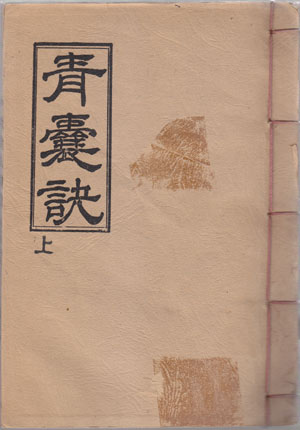 青囊訣
上